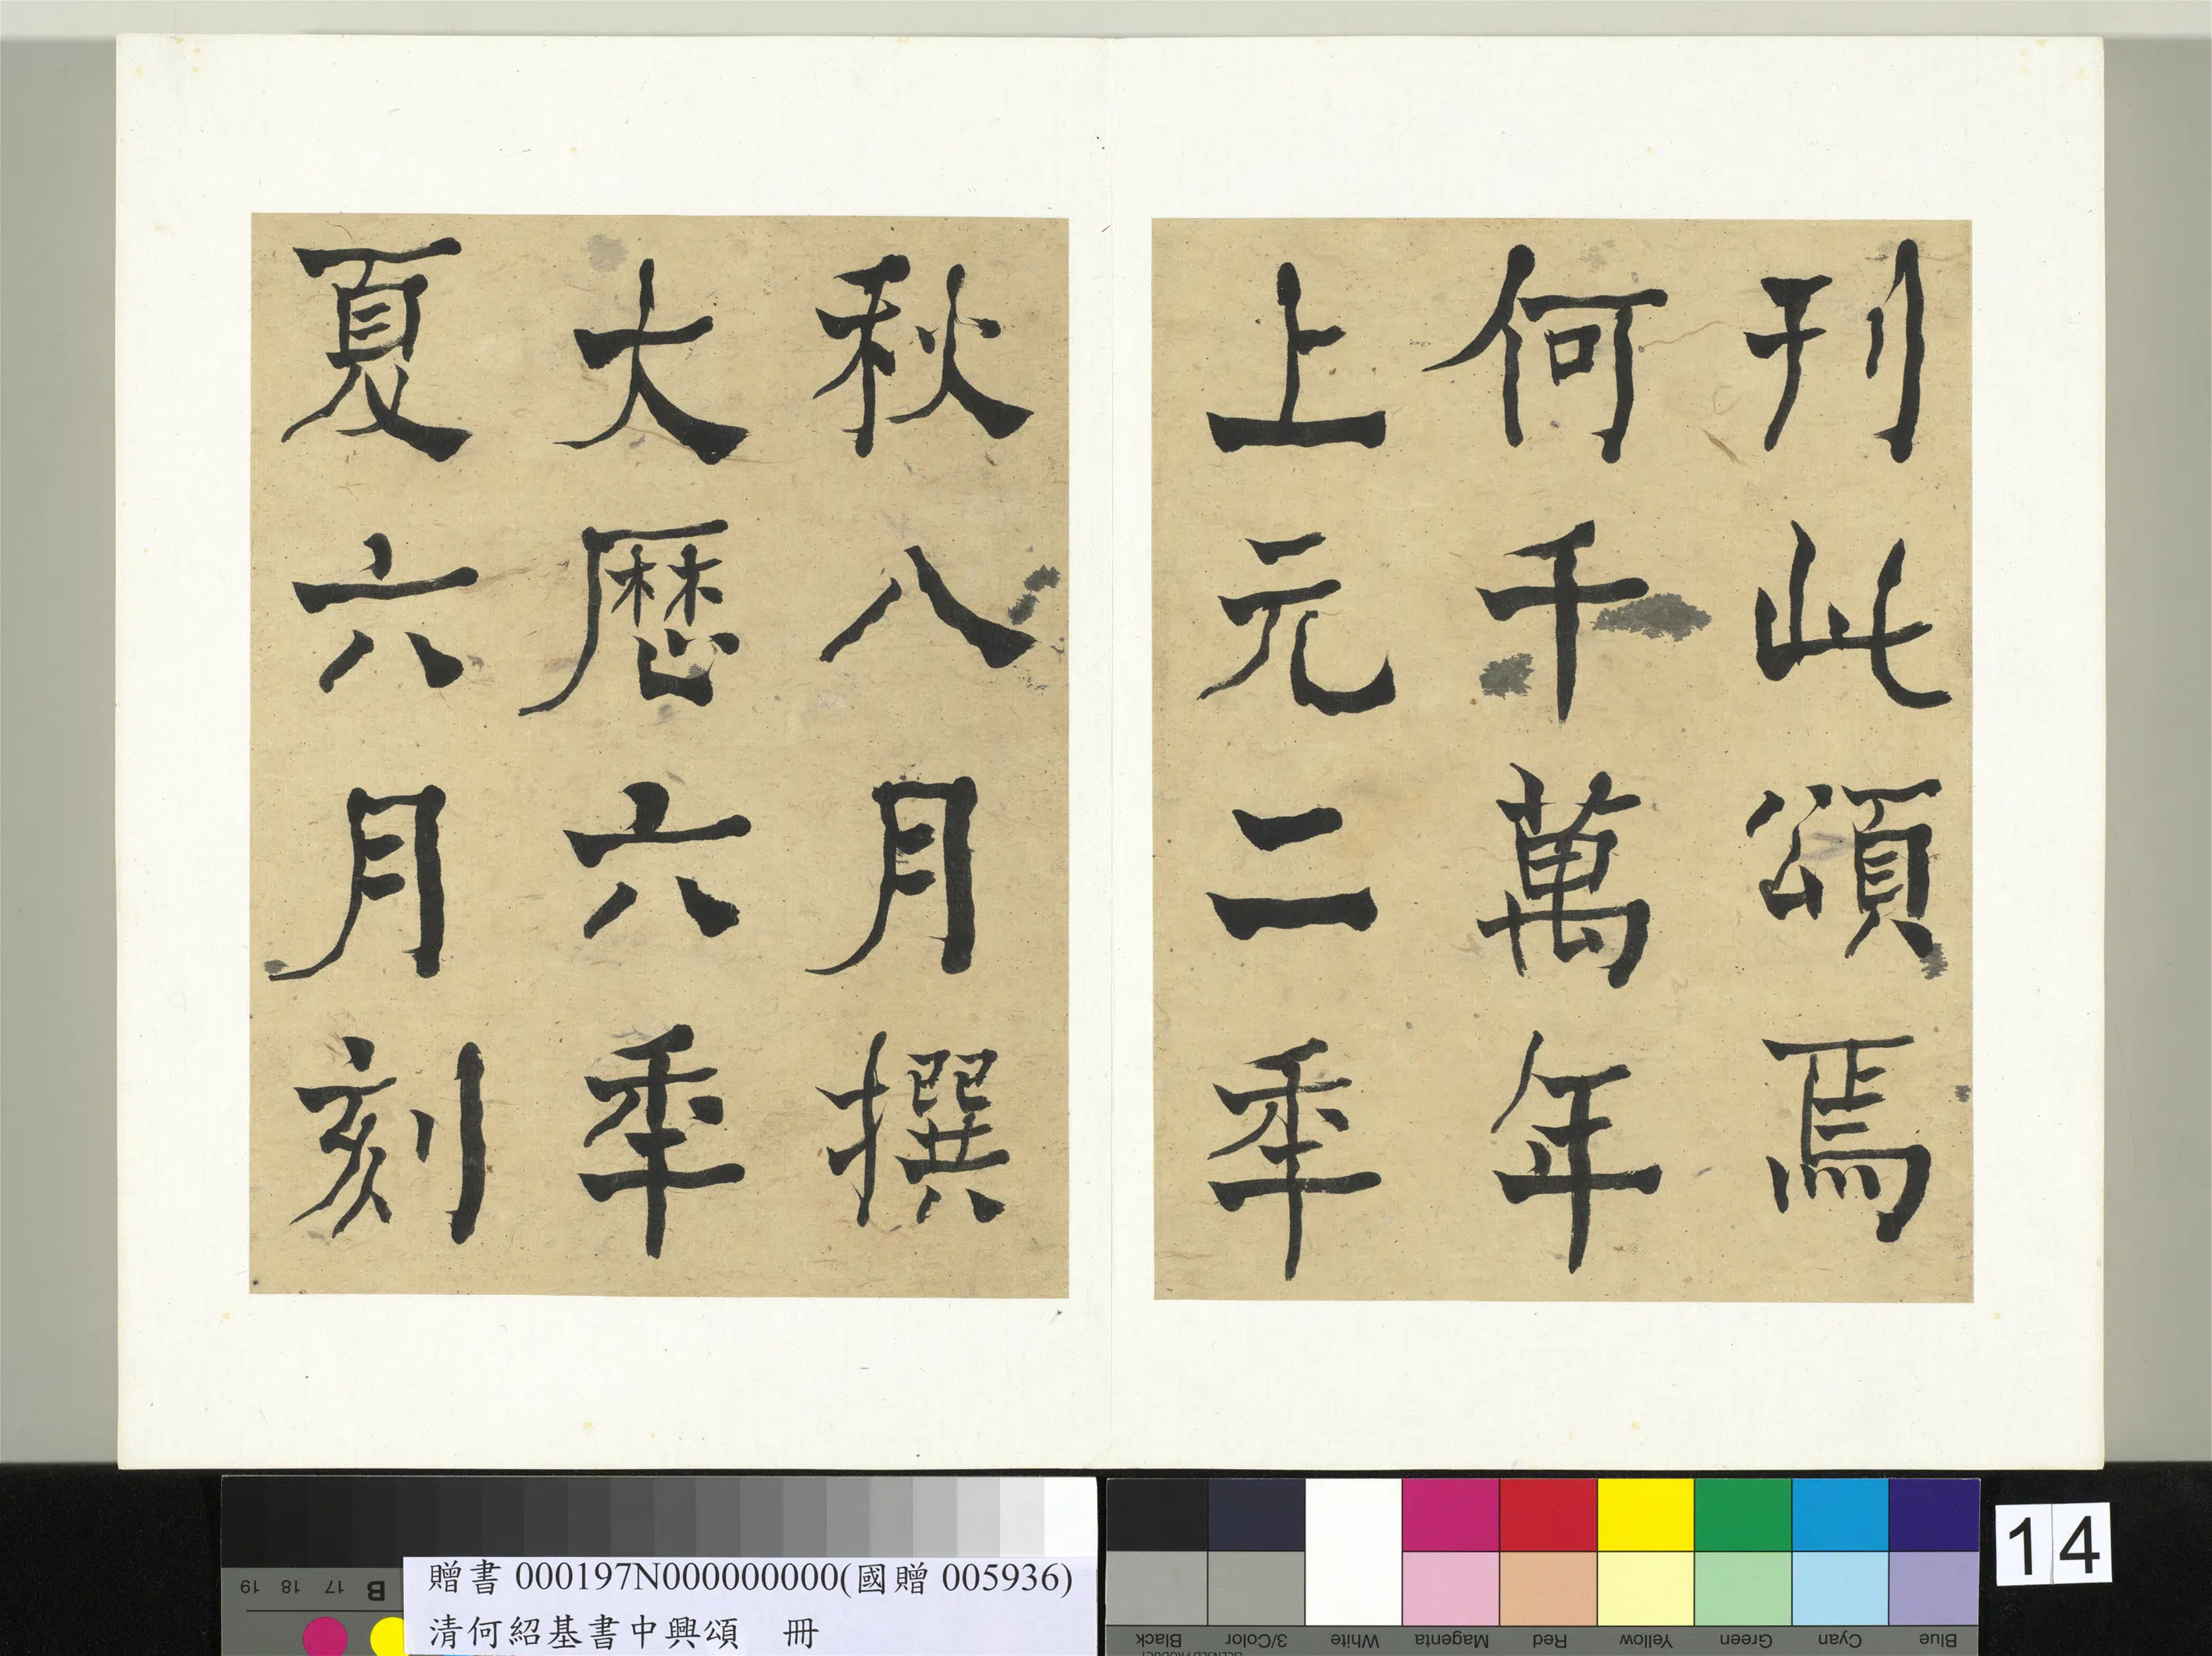 刊此頌焉
何千萬年
上元二秊
秋八月撰
大歷六秊
夏六月刻
贈書 000197N000000000(國贈 005936)
清何紹基書中興頌 冊
19 18 17 B
Black 3/Color White Magenta Red Yellow Green Cyan Blue
LICENSED PRODUCT
14